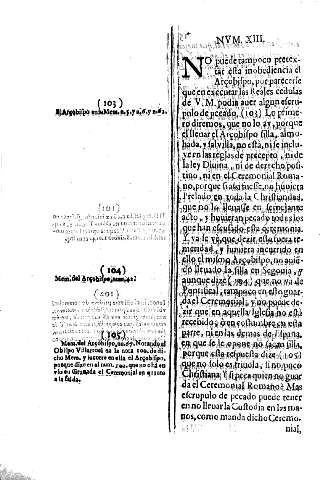 NVM. XIII.
NO puede tampoco pretex-
tar esta inobediencia el
Arçobispo, por parecerse
que en executar las Reales cedulas
de V.M. podia auer algun escru-
pulo de pecado. (103) Lo prime-
ro diremos, que no lo ay, porque
el llenar el Arçobispo silla, almo-
hada, y salvilla, no està, ni se inclu-
ye en las reglas de precepto, ni de
la ley Diuina, ni de derecho posi-
tiuo, ni en el Ceremonial Roma-
no, porque si assi fuesse, no huuiera
Prelado en toda la Christiandad,
que no la lleuasse en semejante
acto, y huuieran pecado todos los
que han escusado esta ceremonia.
y ya se ve que dezir esto fuera te-
meridad, y huuiera incurrido en
ello el mismo Arçobispo, no auiẽ-
do lleuado la silla en Segouia, y
aunque dize (104) que no va de
Pontifical, tampoco en esto guar-
da el Ceremonial, y no puede de-
zir que en aquella Iglesia no està
recebido, ò en costumbre en esta
parte, ni en las demas de España,
en que se le opone no sacan silla,
porque esta respuesta dize (105)
que no solo es friuola, si no poco
Christiana. Y si peca quien no guar
da el Ceremonial Romano? Mas
escrupulo de pecado puede tener
en no lleuar la Custodia en las ma-
nos, como manda dicho Ceremo-
nial,
(103)
El Arçobispo en su Mem. n. 5. y 26. y n. 62.
(104)
Mem. del Arçobispo, num. 42.
(105)
Mem. del Arçobispo, n. 67. Notando el
Obispo Villarroel en la nota 100. de di-
cho Mem. y incurre en ella el Arçobispo,
porque dize en el num. 100. que no està en
vso en Granada el Ceremonial en quanto
a la silla.